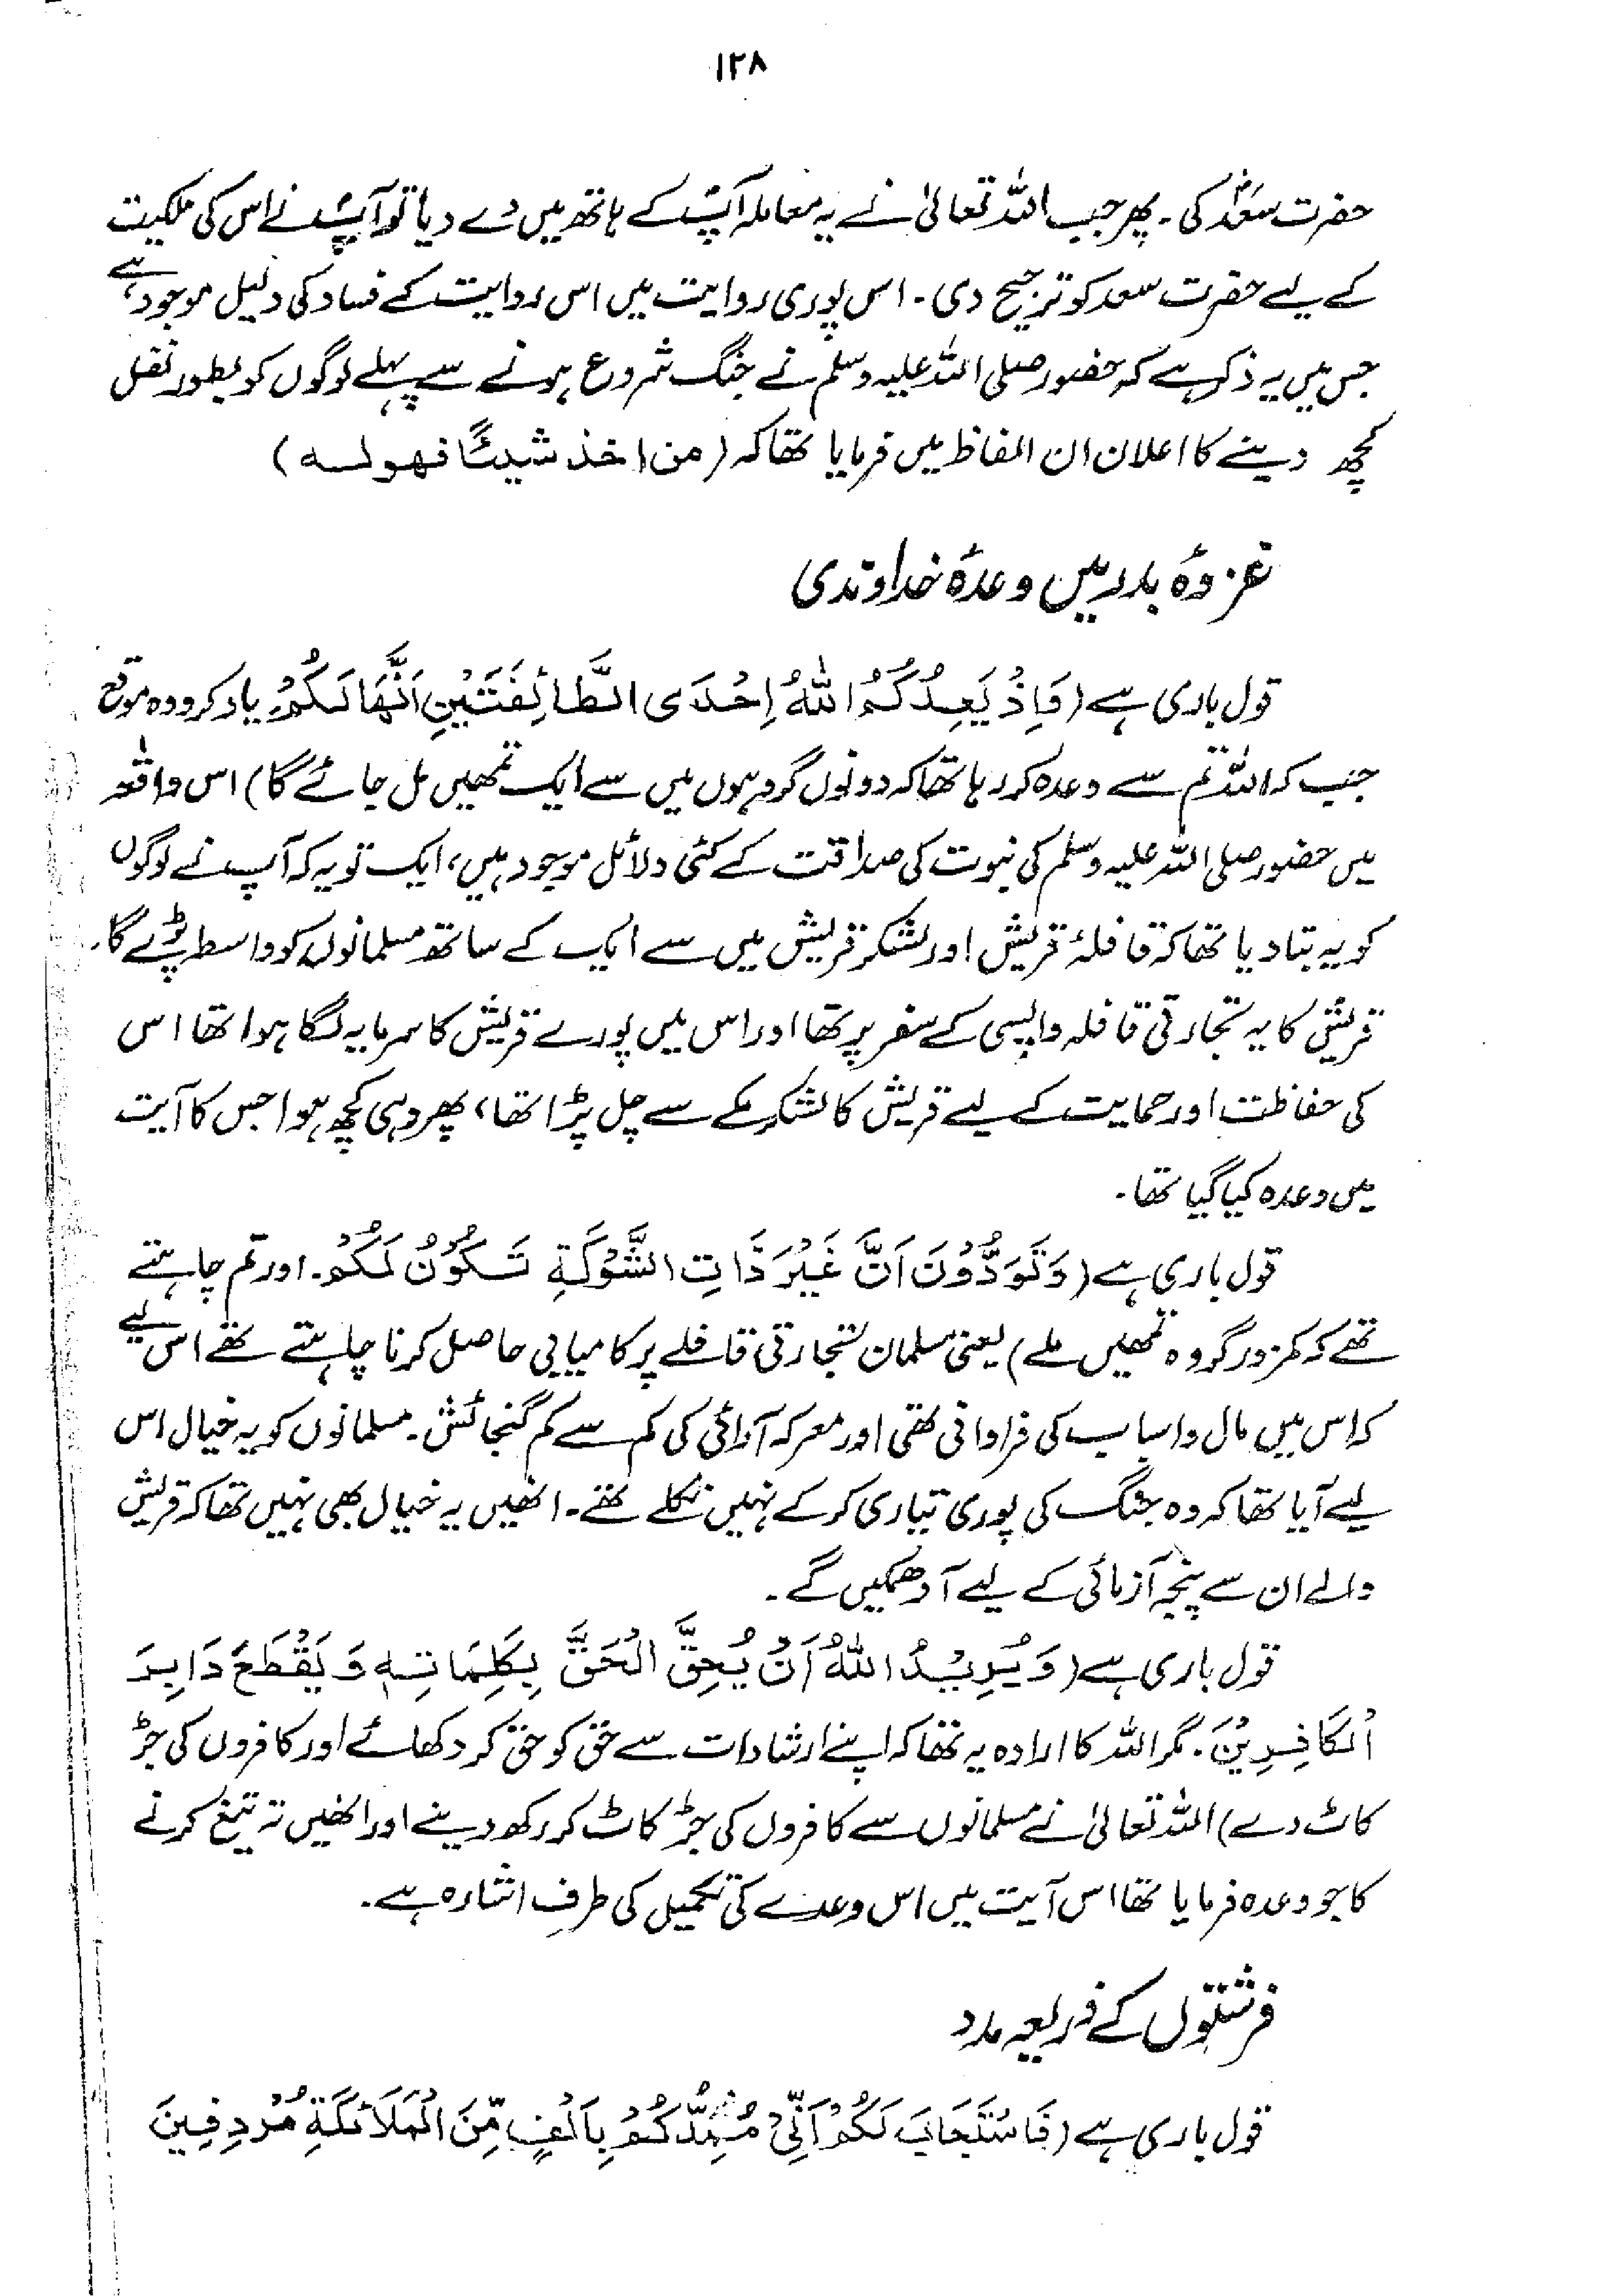 ۱۲۸
حضرت سعدؓ کی۔ پھر جب اللہ تعالیٰ نے یہ معاملہ آپؐ کے ہاتھ میں دے دیا تو آپؐ نے اس کی ملکیت
کے لیے حضرت سعد کو ترجیح دی۔ اس پوری روایت میں اس روایت کے فساد کی دلیل موجود ہے
جس میں یہ ذکر ہے کہ حضور صلی اللہ علیہ وسلم نے جنگ شروع ہونے سے پہلے لوگوں کو بطور نفل
کچھ دینے کا اعلان ان الفاظ میں فرمایا تھا کہ (من اخذ شیئًا فھو لہ)
غزوۂ بدر میں وعدۂ خداوندی
قول باری ہے (وَاِذْ يَعِدُكُمُ اللّٰهُ اِحْدَى الطَّائِفَتَيْنِ اَنَّهَا لَكُمْ۔ یاد کرو وہ موقع
جب کہ اللہ تم سے وعدہ کر رہا تھا کہ دونوں گروہوں میں سے ایک تمھیں مل جائے گا) اس واقعہ
میں حضور صلی اللہ علیہ وسلم کی نبوت کی صداقت کے کئی دلائل موجود ہیں، ایک تو یہ کہ آپ نے لوگوں
کو یہ بتا دیا تھا کہ قافلۂ قریش اور لشکر قریش میں سے ایک کے ساتھ مسلمانوں کو واسطہ پڑے گا۔
قریش کا یہ تجارتی قافلہ واپسی کے سفر پر تھا اور اس میں پورے قریش کا سرمایہ لگا ہوا تھا اس
کی حفاظت اور حمایت کے لیے قریش کا لشکر مکے سے چل پڑا تھا، پھر وہی کچھ ہوا جس کا آیت
میں وعدہ کیا گیا تھا۔
قول باری ہے (وَتَوَدُّوْنَ اَنَّ غَيْرَ ذَاتِ الشَّوْكَةِ تَكُوْنُ لَكُمْ۔ اور تم چاہتے
تھے کہ کمزور گروہ تمھیں ملے) یعنی مسلمان تجارتی قافلے پر کامیابی حاصل کرنا چاہتے تھے اس لیے
کہ اس میں مال و اسباب کی فراوانی تھی اور معرکہ آرائی کی کم سے کم گنجائش۔ مسلمانوں کو یہ خیال اس
لیے آیا تھا کہ وہ جنگ کی پوری تیاری کر کے نہیں نکلے تھے۔ انھیں یہ خیال بھی نہیں تھا کہ قریش
والے ان سے پنجہ آزمائی کے لیے آ دھمکیں گے۔
قول باری ہے (وَيُرِيْدُ اللّٰهُ اَنْ يُحِقَّ الْحَقَّ بِكَلِمَاتِهٖ وَيَقْطَعَ دَابِرَ
الْكَافِرِيْنَ۔ مگر اللہ کا ارادہ یہ تھا کہ اپنے ارشادات سے حق کو حق کر دکھائے اور کافروں کی جڑ
کاٹ دے) اللہ تعالیٰ نے مسلمانوں سے کافروں کی جڑ کاٹ کر رکھ دینے اور انھیں تہ تیغ کرنے
کا جو وعدہ فرمایا تھا اس آیت میں اس وعدے کی تکمیل کی طرف اشارہ ہے۔
فرشتوں کے ذریعہ مدد
قول باری ہے (فَاسْتَجَابَ لَكُمْ اَنِّيْ مُمِدُّكُمْ بِاَلْفٍ مِّنَ الْمَلَائِكَةِ مُرْدِفِيْنَ